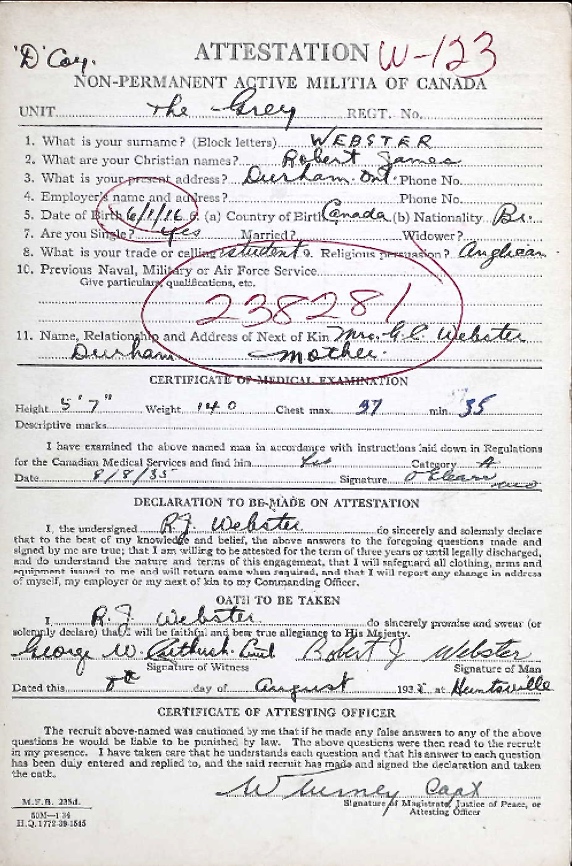 'D' Coy. ATTESTATION W-123
NON-PERMANENT ACTIVE MILITIA OF CANADA
UNIT The Grey REGT. No.
1. What is your surname? (Block letters) WEBSTER
2. What are your Christian names? Robert James
3. What is your present address? Durham. Ont. Phone No.
4. Employer's name and address? Phone No.
5 Date of Birth 6/1/16 (a) Country of Birth Canada (b) Nationality Br.
7. Are you Single? yes Married? Widower?
8. What is your trade or calling student 9. Religious persuasion? Anglican
10. Previous Naval, Military or Air Force Service
Give particulars, qualifications, etc.
238281
11. Name, Relationship and Address of Next of Kin Mrs. G. C. Webster
Durham Mother.
CERTIFICATE OF MEDICAL EXAMINATION
Height 5' 7" Weight 140 Chest max. 37 min. 35
Descriptive marks
I have examined the above named man in accordance with instructions laid down in Regulations
for the Canadian Medical Services and find him Category A
Date 8/8/35 Signature
DECLARATION TO BE MADE ON ATTESTATION
I, the undersigned R. J. Webster do sincerely and solemnly declare
that to the best of my knowledge and belief, the above answers to the foregoing questions made and
signed by me are true; that I am willing to be attested for the term of three years or until legally discharged,
and do understand the nature and terms of this engagement, that I will safeguard all clothing, arms and
equipment issued to me and will return same when required, and that I will report any change in address
of myself, my employer or my next of kin to my Commanding Officer.
OATH TO BE TAKEN
I, R. J. Webster do sincerely promise and swear (or
solemnly declare) that I will be faithful and bear true allegiance to His Majesty.
George W. Robert J Webster
Signature of Witness Signature of Man
Dated this 8th day of August 193 at Huntsville
CERTIFICATE OF ATTESTING OFFICER
The recruit above-named was cautioned by me that if he made any false answers to any of the above
questions he would be liable to be punished by law. The above questions were then read to the recruit
in my presence. I have taken care that he understands each question and that his answer to each question
has been duly entered and replied to, and the said recruit has made and signed the declaration and taken
the oath.
Capt
Signature of Magistrate, Justice of Peace, or
Attesting Officer
M.F.B. 235d.
50M—1-34
H.Q. 1772-39-1545